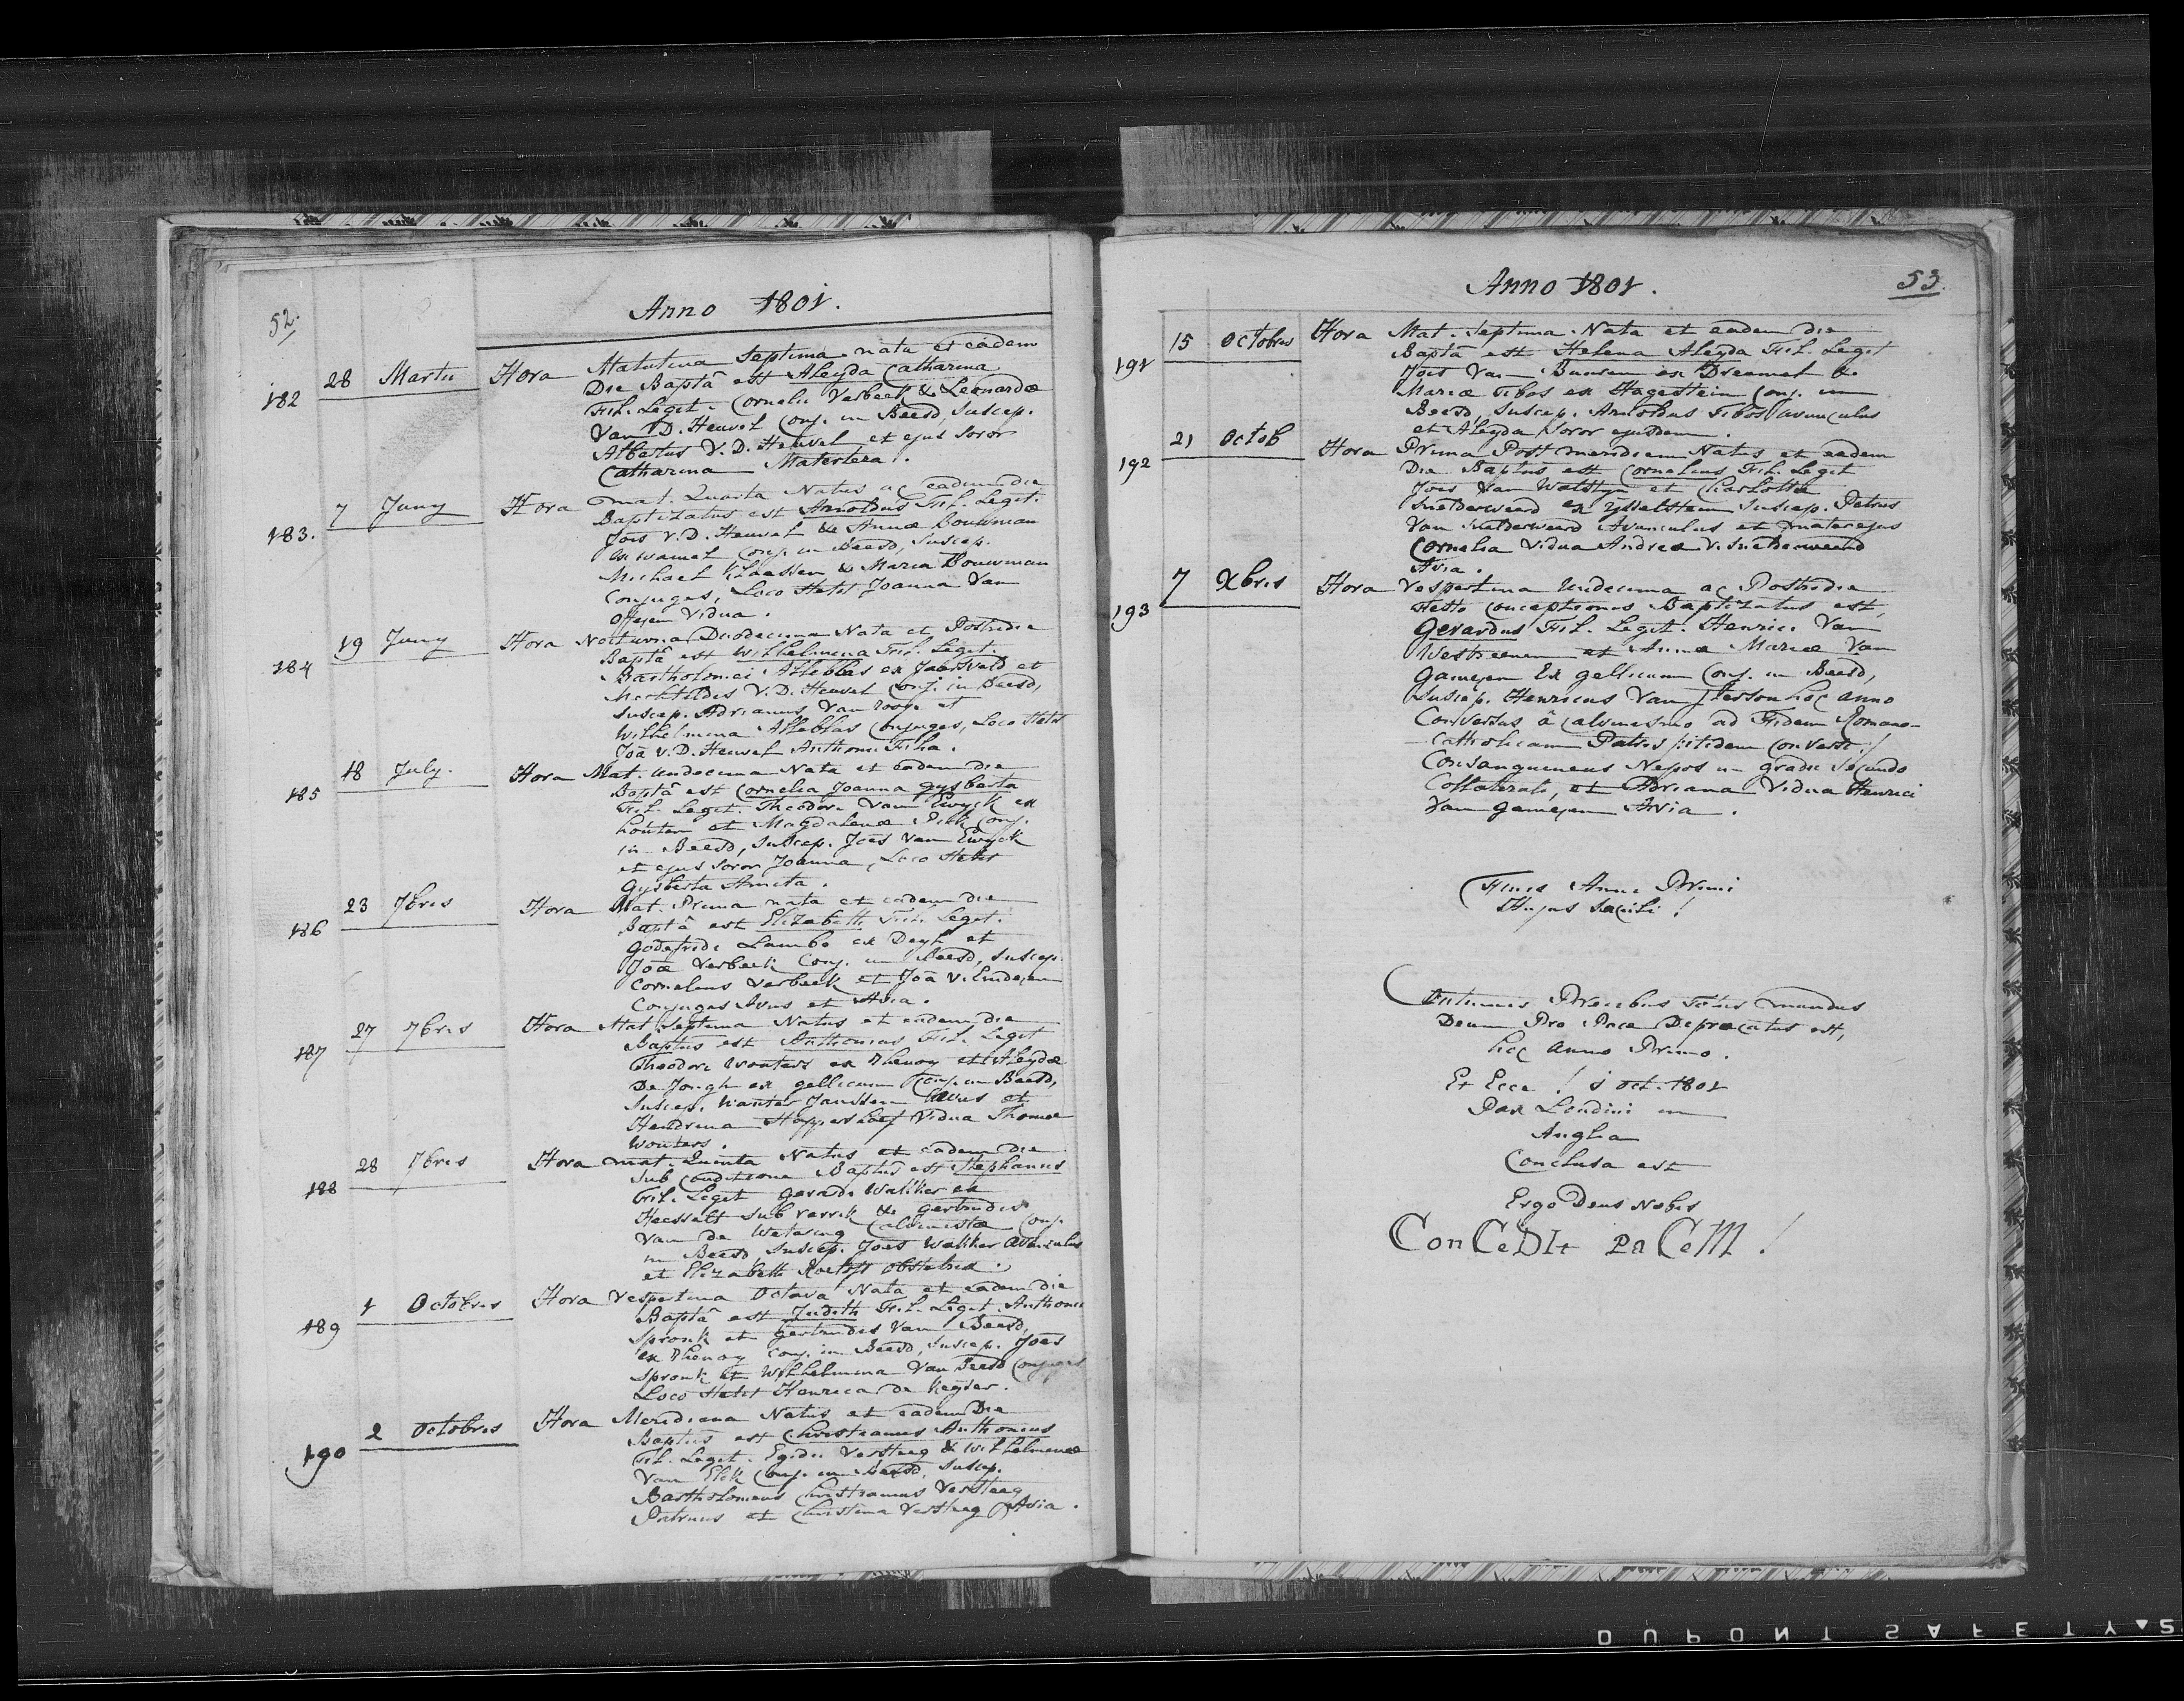 52.
Anno 1801.
182 28 Martii Hora Matutina Septima nata et eadem
Die Baptâ est Aleyda Catharina
Fil. Legit. Cornelii Verbeek & Leonardæ
Van D. Heuvel Conj. in Beesd, Suscep.
Albertus V. D. Heuvel et ejus Soror
Catharina Matertera.
183. 7 Juny Hora mat. Quarta Natus ac eadem die
Baptizatus est Arnoldus Fil. Legit.
Jois V. D. Heuvel & Annæ Bouwman
ex wamel Conj. in Beesd, Suscep.
Michael Klaassen & Maria Bouwman
Conjuges, Loco Stetit Joanna Van
Vidua.
184 19 Juny Hora Nocturna Duodecima Nata et Postridie
Baptâ est Wilhelmina Fil. Legit.
Bartholomei Alleblas ex Jaarsveld et
Mechtildis V. D. Heuvel Conj. in Beesd,
Suscep. Adrianus Van rooye et
Wilhelmina Alleblas Conjuges, Loco Stetit
Joâ V. D. Heuvel Anthonii Filia.
185 18 July. Hora Mat. undecima Nata et eadem die
Baptâ est Cornelia Joanna Gysberta
Fil. Legit Theodori Van Ewyck ex
houten et Magdalenæ Conj.
in Beesd, Suscep. Joes Van Ewyck
et ejus Soror Joanna, Loco Stetit
Gysberta Amita.
186 23 7bris Hora Mat. Prima nata et eadem die
Baptâ est Elizabeth Fil. Legit.
Godefridi Lambo ex Deyl et
Joæ Verbeek Conj. in Beesd, Suscep.
Cornelius Verbeek et Joâ V.
Conjuges Avus et Avia.
187 27 7bris Hora Mat. Septima Natus et eadem die
Baptus est Anthonius Fil. Legit
Theodori Wouters ex Rhenoy et Aleydæ
De Jongh ex gellicum Conj. in Beesd,
Suscep. Wauter Janssen Avus et
Hendrina Vidua Thomæ
Wouters.
188 28 7bris Hora mat. Quinta Natus et eadem die
Sub Conditione Baptus est Stephanus
Fil. Legit Gerardi Wakker ex
Heesselt sub Varrik & Gertrudis
Van de Watering Calvinistæ Conj.
in Beesd Suscep. Joes Wakker avunculus
et Elizabeth Obstetrix.
189 1 Octobris Hora Vespertina Octava Nata et eadem die
Baptâ est Judith Fil. Legit. Anthonii
Spronk et Gertrudis Van Beesd,
ex Rhenoy Conj. in Beesd, Suscep. Joes
Spronk et Wilhelmina Van Beesd Conjuges
Loco Stetit Henrica de Keyser.
190 2 Octobris Hora Meridiana Natus et eadem Die
Baptus est Christianus Anthonius
Fil. Legit. Egidii Versteeg & Wilhelminæ
Van Elck Conj. in Beesd, Suscep.
Bartholomeus Christianus Versteeg
Patruus et Christina Versteeg Avia.
Anno 1801. 53.
191 15 Octobris Hora Mat. Septima Nata et eadem die
Baptâ est Helena Aleyda Fil. Legit
Jois Van Buuren ex Dreumel &
Mariæ Tibos ex Hagestein Conj. in
Beesd, Suscep. Arnoldus Tibos avunculus
et Aleyda Soror ejusdem.
192 21 Octob Hora Prima Post meridiem Natus et eadem
Die Baptus est Cornelius Fil. Legit
Jois Van Walstyn et Charlottæ
Snelderweerd ex ysselsteim Suscep. Petrus
Van Snelderweerd Avunculus et mater ejus
Cornelia Vidua Andreæ V. Snelderweerd
Avia.
193 7 Xbris Hora Vespertina Undecima ac Postridie
Festo Conceptionis Baptizatus est,
Gerardus Fil. Legit. Henrici Van
Westreenen et Annæ Mariæ Van
Gameren Ex gellicum Conj. in Beesd,
Suscep. Henricus Van hoc anno
Conversus â Calvinismo ad Fidem Romano-
Catholicam Patris /:itidem Conversi:/
Consanguineus Nepos in gradu Secundo
Collaterali, et Adriana Vidua Henrici
Van Gameren Avia.
Finis Anni Primi
Hujus Sæculi!
Continuis Precibus Totus mundus
Deum Pro Pace Deprecatus est,
hoc Anno Primo.
Et Ecce! 1 oct. 1801
Pax Londini in
Anglia
Conclusa est
Ergo Deus Nobis
ConCeDIt PaCeM!
DUPONT SAFETY